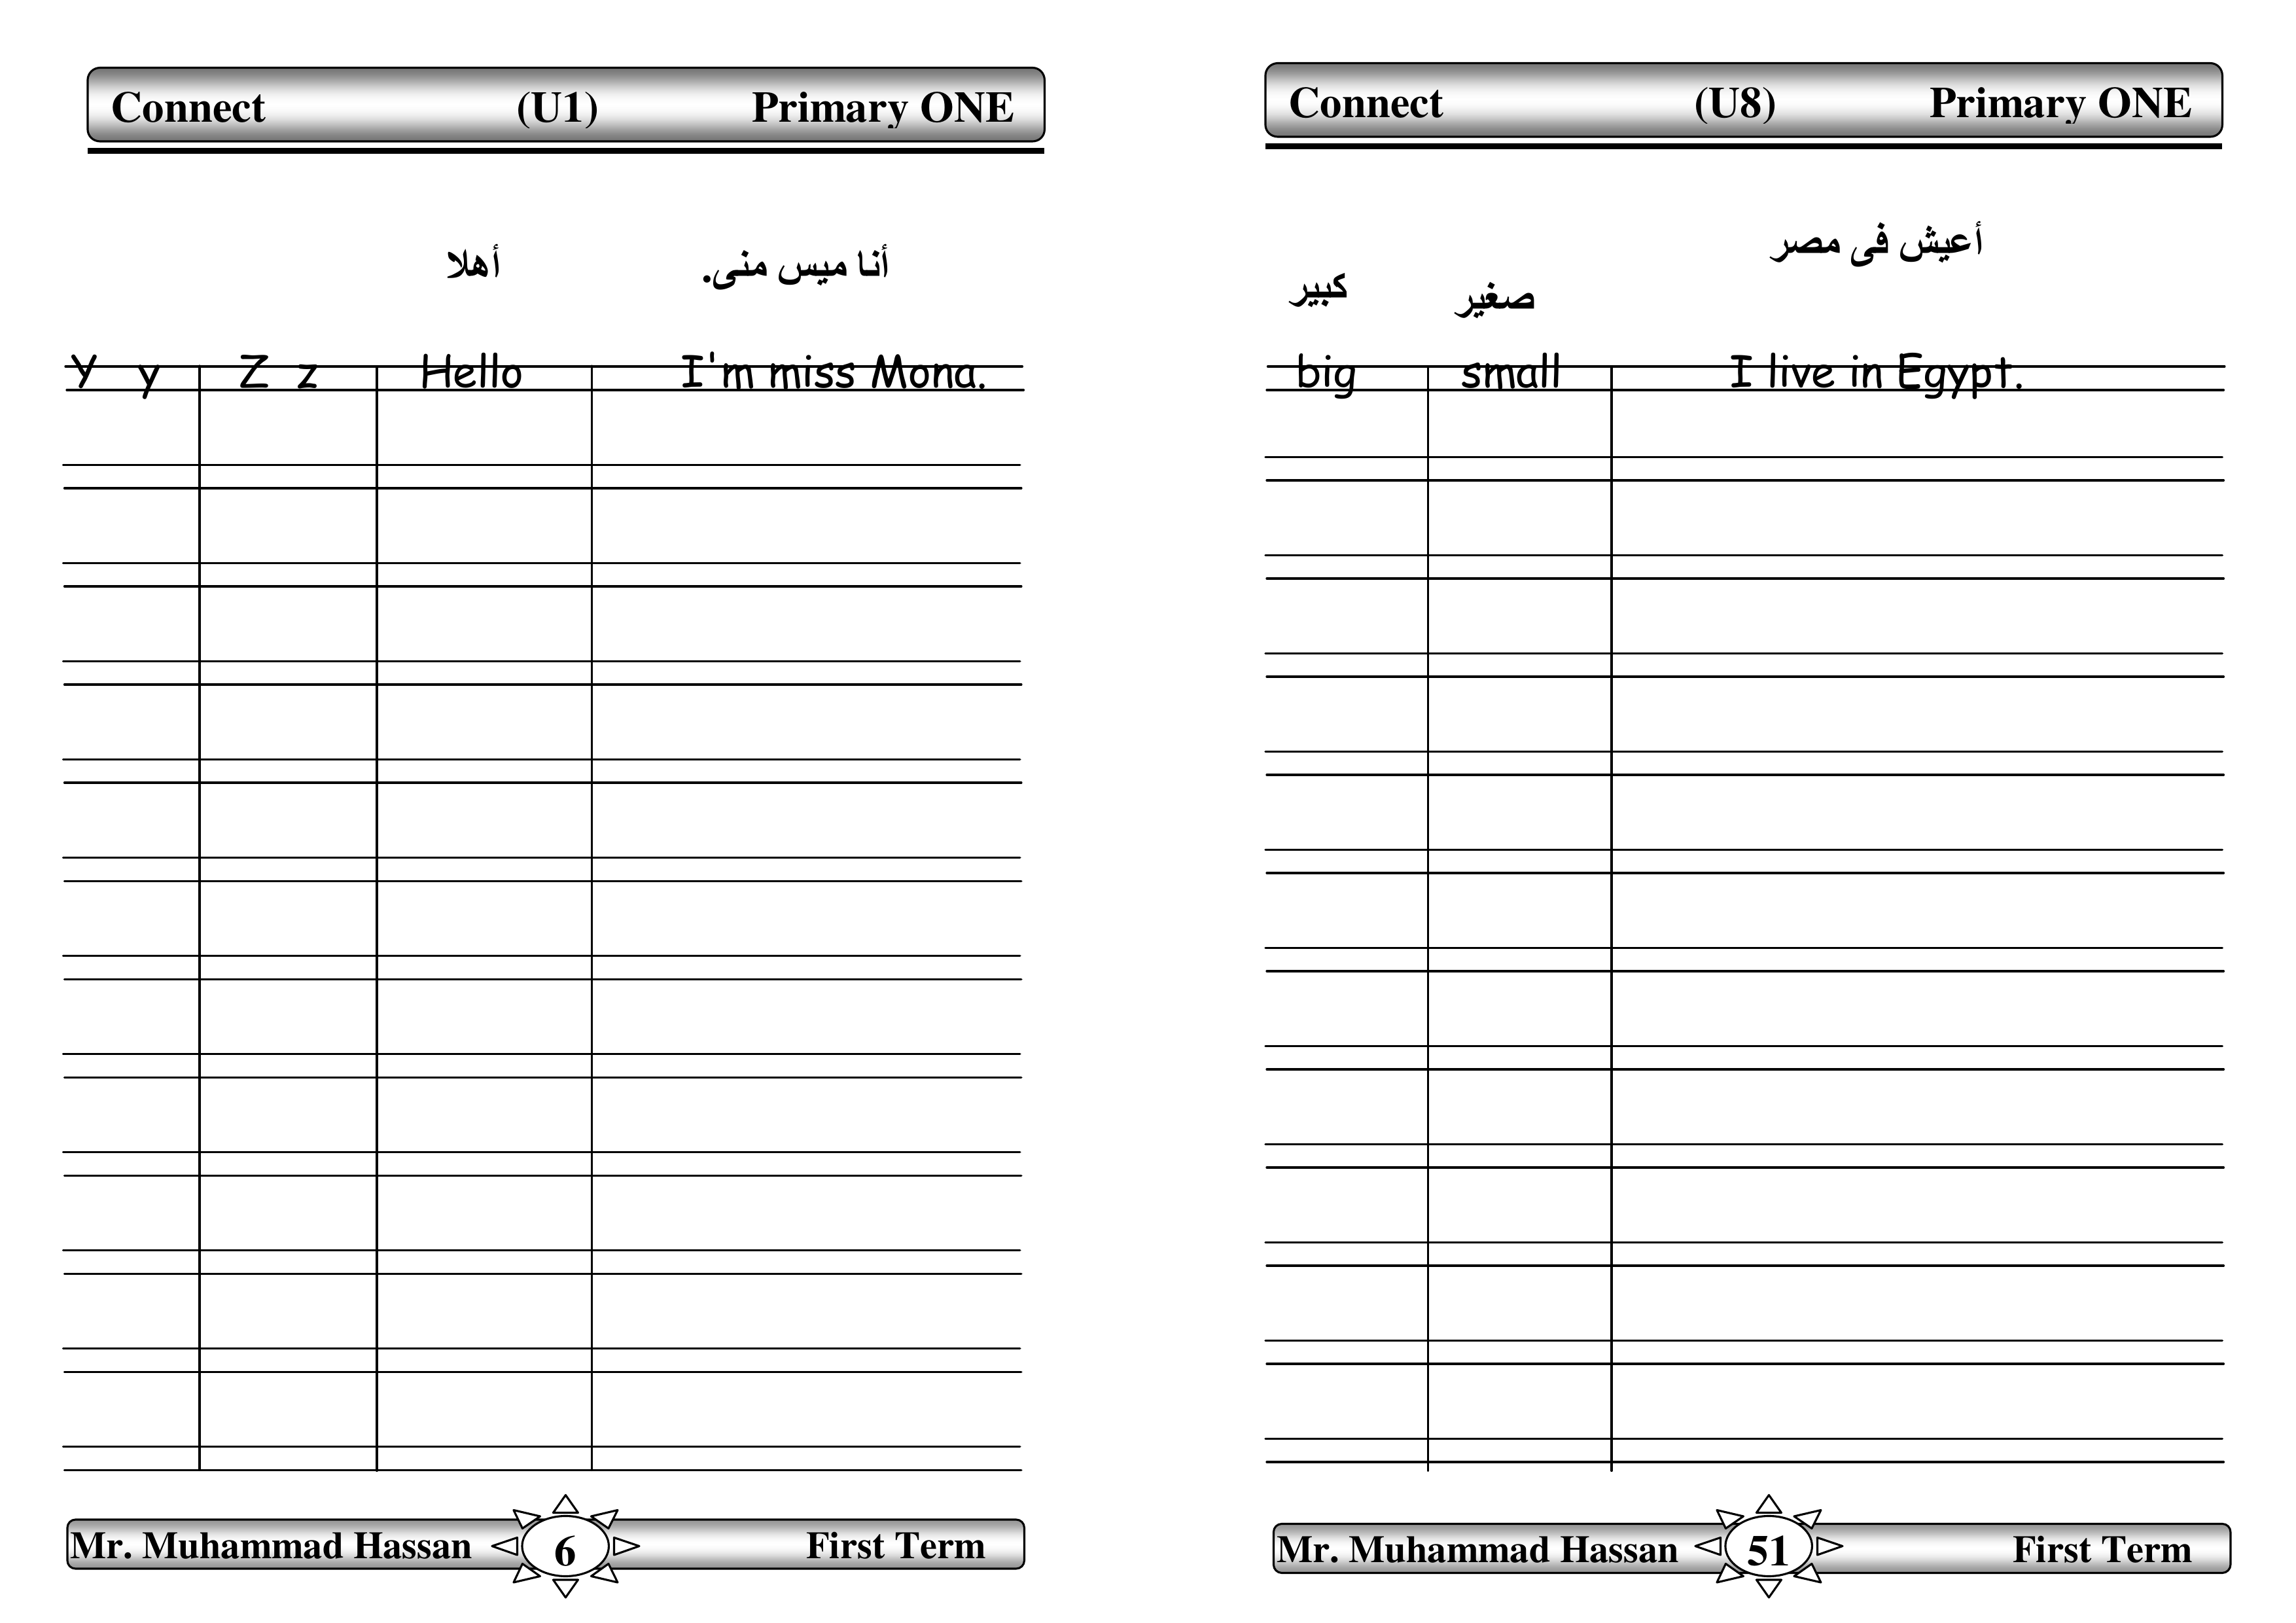 Connect (U1) Primary ONE
أهلا أنا ميس منى.
Y y Z z Hello I'm miss Mona.
Mr. Muhammad Hassan 6 First Term
Connect (U8) Primary ONE
أعيش فى مصر
كبير صغير
big small I live in Egypt.
Mr. Muhammad Hassan 51 First Term